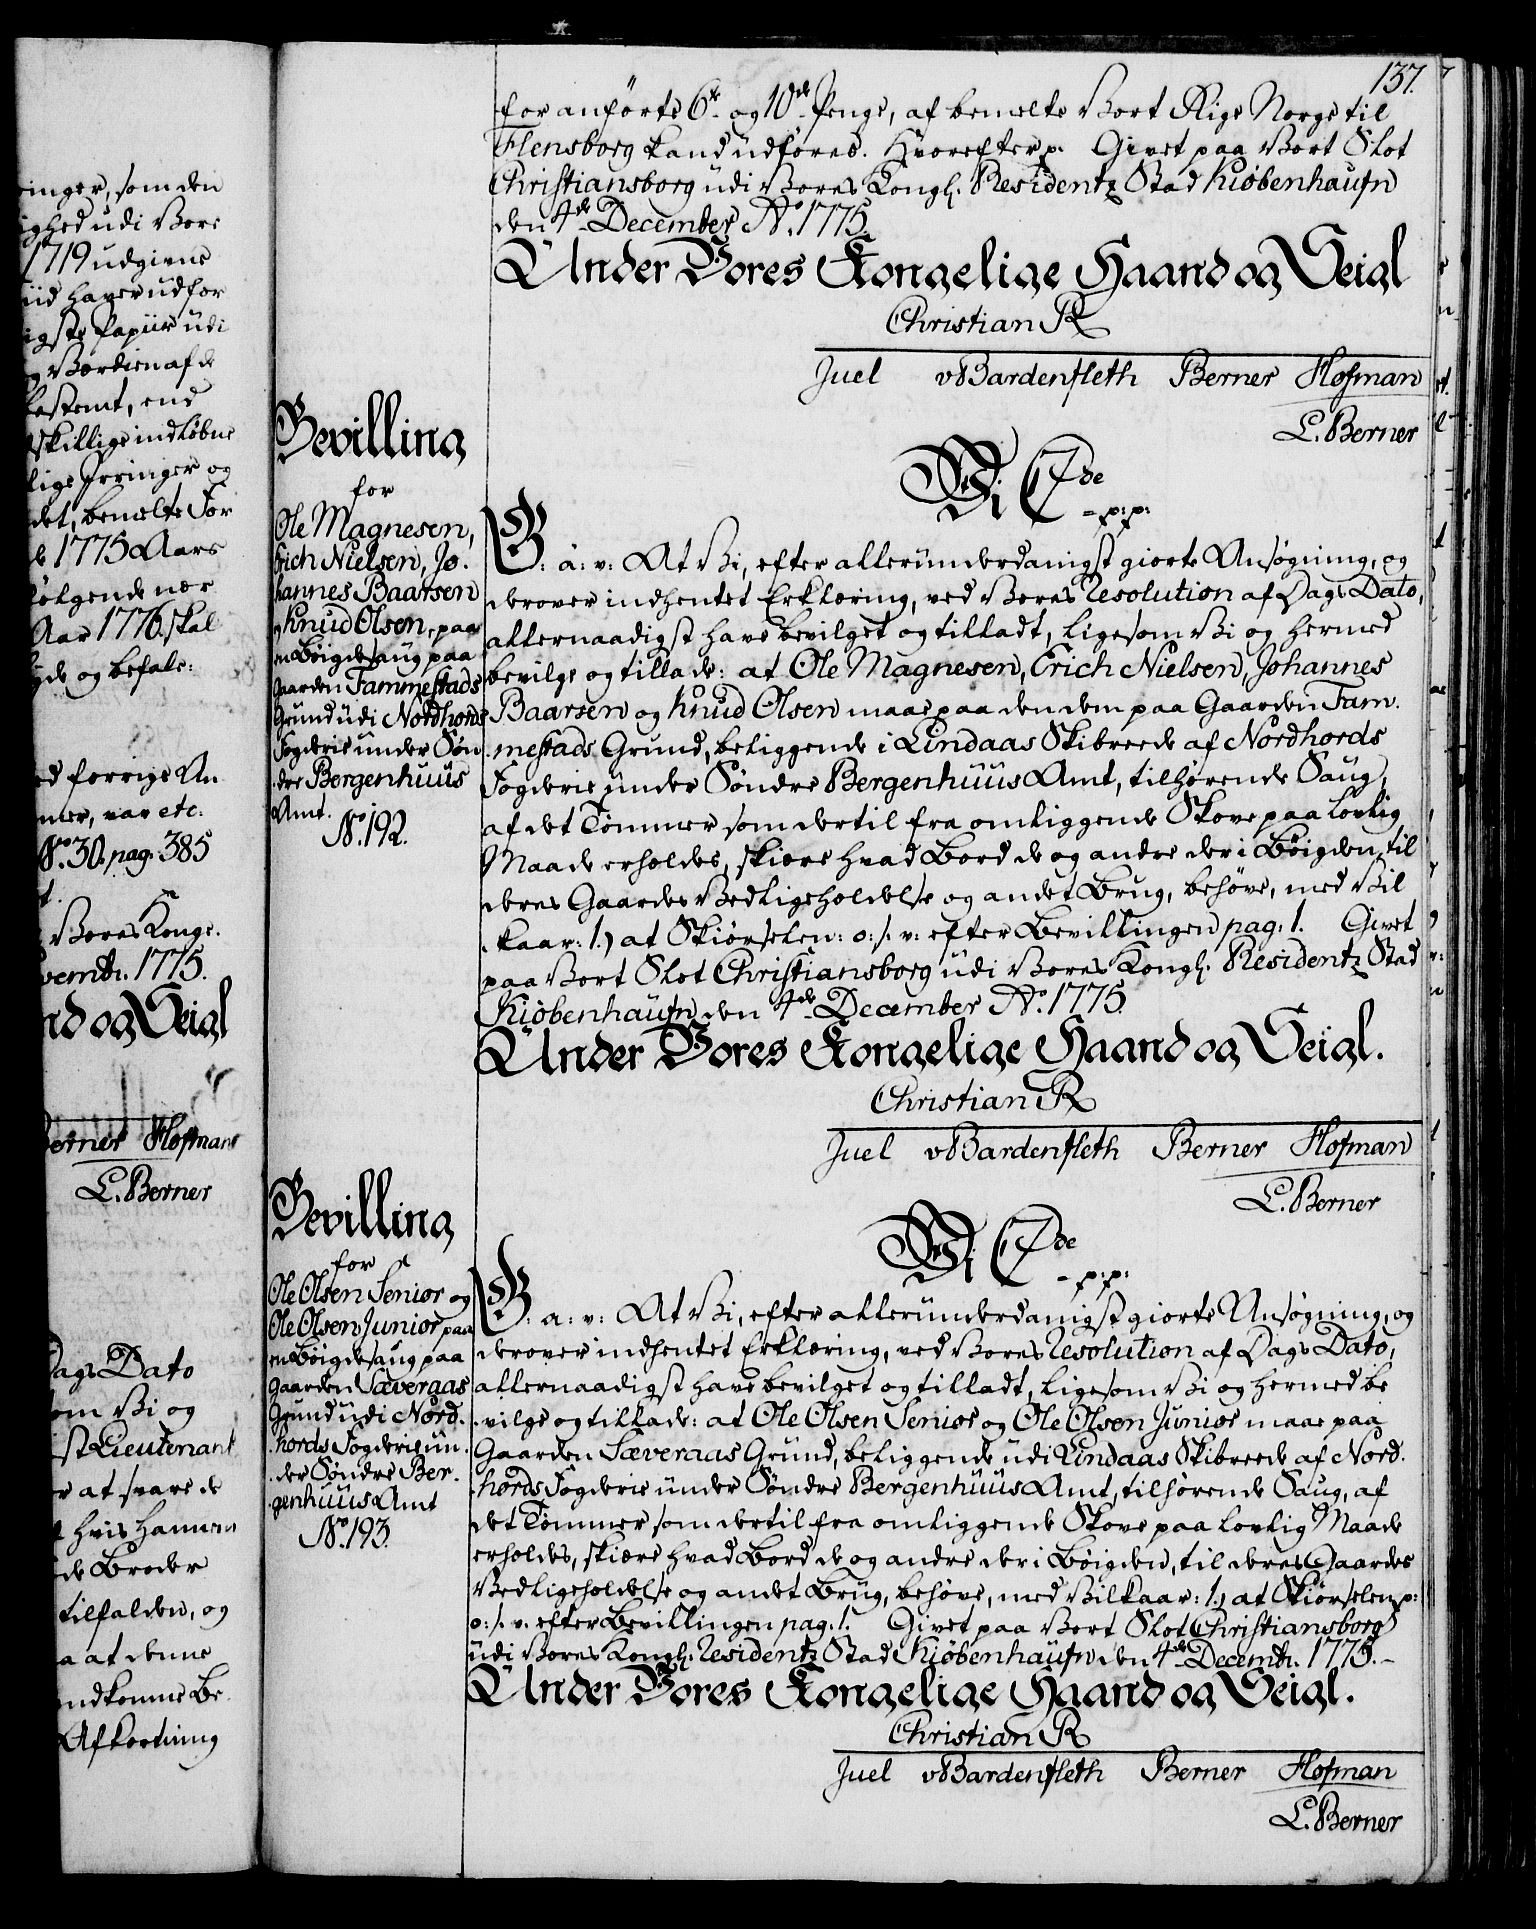 137.
for anförte 6te og 10de Penge, af bemelte Vort Rige Norge til
Flensborg kand udföres. Hvorefter p. Givet paa Vort Slot
Christiansborg udi Vores Kongl: Residentz Stad Kiöbenhaufn
den 4de December Ao. 1775.
Under Vores Kongelige Haand og Seigl
Christian R
Juel vBardenfleth Berner Hofman
L. Berner
Bevilling
for
Ole Magnesen,
Erich Nielsen, Jo-
hannes Baarsen
og Knud Olsen, paa
en Böigdesaug paa
Gaarden Fammestads
Grund udi Nordhords
Fogderie under Søn-
dre Bergenhuus
Amt.
No. 192.
Vi C7de
-p:p:
G: a: v: At Vi, efter allerunderdanigst giorte Ansøgning, og
derover indhentet Erklæring, ved Vores Resolution af Dags Dato,
allernaadigst have bevilget og tilladt, ligesom Vi og hermed
bevilge og tillade: at Ole Magnesen, Erich Nielsen, Johannes
Baarsen og Knud Olsen maae paa den dem paa Gaarden Fam-
mestads Grund, beliggende i Lindaas Skibreede af Nordhords
Fogderie under Søndre Bergenhuus Amt, tilhørende Saug,
af det Tömmer som dertil fra omliggende Skove paa lovlig
Maade erholdes, skiære hvad Bord de og andre der i Böigden, til
deres Gaardes Vedligeholdelse og andet Brug, behöve, med Vil-
kaar: 1.) at Skiørselen: o: s. v: efter Bevillingen pag: 1. Givet
paa Vort Slot Christiansborg udi Vores Kongl: Residentz Stad
Kiöbenhaufn den 4de December Ao. 1775.
Under Vores Kongelige Haand og Seigl.
Christian R
Juel vBardenfleth Berner Hofman
L. Berner
Bevilling
for
Ole Olsen Senior og
Ole Olsen Junior, paa
en Böigdesaug paa
Gaarden Sæveraas
Grund udi Nord-
hords Fogderie un-
der Søndre Ber-
genhuus Amt
No. 193.
Vi C7de
-p:p:
G: a: v: At Vi, efter allerunderdanigst giorte Ansøgning, og
derover indhentet Erklæring, ved Vores Resolution af Dags Dato,
allernaadigst have bevilget og tilladt, ligesom Vi og hermed be-
vilge og tillade: at Ole Olsen Senior og Ole Olsen Junior maae paa
Gaarden Sæveraas Grund, beliggende udi Lindaas Skibreede af Nord-
hords Fogderie under Søndre Bergenhuus Amt, tilhørende Saug, af
det Tömmer som dertil fra omliggende Skove paa lovlig Maade
erholdes, skiære, hvad Bord de og andre der i Böigden, til deres Gaardes
Vedligeholdelse og andet Brug, behöve, med Vilkaar: 1.) at Skiørselen p:
o: s. v. efter Bevillingen pag. 1. Givet paa Vort Slot Christiansborg
udi Vores Kongl: Residentz Stad Kiöbenhaufn den 4de Decembr. 1775.-
Under Vores Kongelige Haand og Seigl.
Christian R
Juel vBardenfleth Berner Hofman
L. Berner